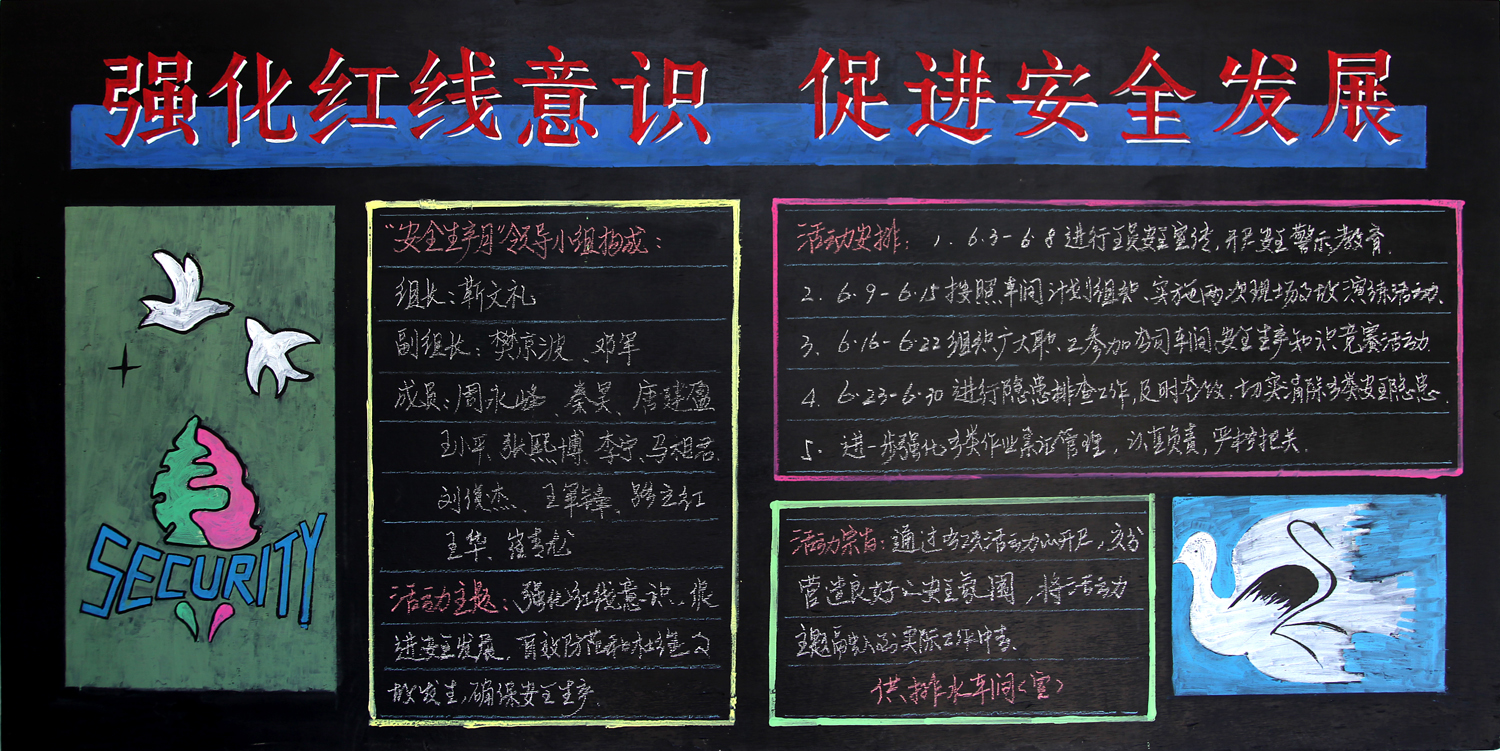 强化红线意识 促进安全发展
"安全生产月"领导小组构成：
组长：靳文礼
副组长：樊京波、邓军
成员：周永峰、秦昊、唐建盈
王小平、张熙博、李宁、马祖君、
刘俊杰、王军锋、路立红
王华、崔青龙
活动主题：强化红线意识、促
进安全发展，有效防范和杜绝事
故发生，确保安全生产。
活动安排：1、6·3-6·8进行全员安全宣传，开展安全警示教育。
2、6·9-6·15按照车间计划组织、实施两次现场事故演练活动、
3、6·16-6·22组织广大职工参加公司车间安全生产知识竞赛活动
4、6·23-6·30进行隐患排查工作，及时整改，切实消除各类安全隐患。
5、进一步强化各类作业票证管理，认真负责，严格把关。
活动宗旨：通过各项活动的开展，充分
营造良好的安全氛围，将活动
主题融入到实际工作中去。
供、排水车间（室）
SECURITY